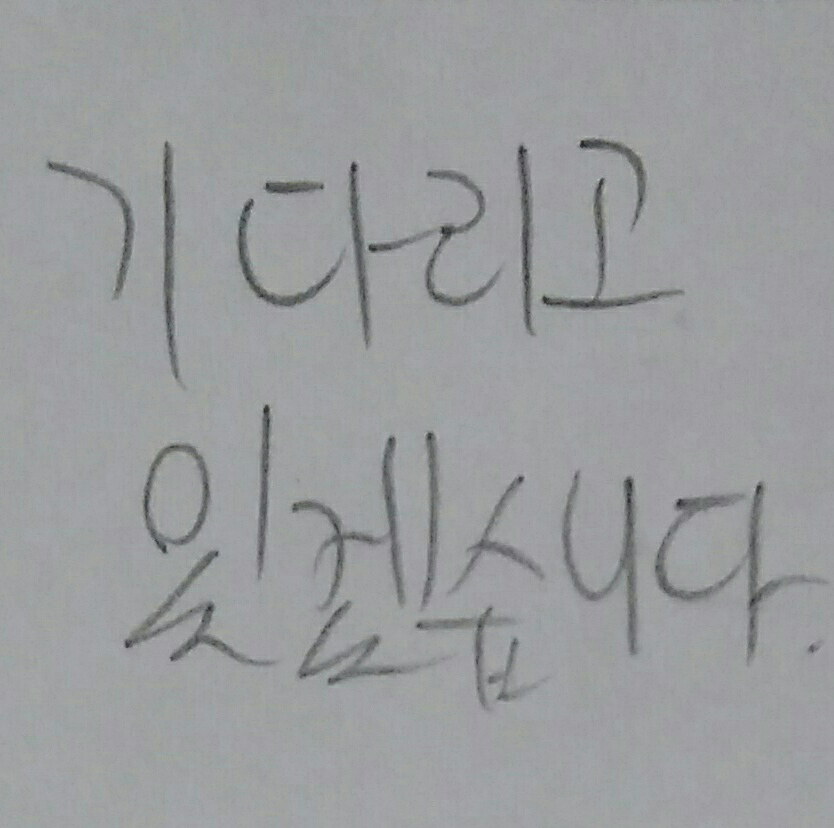 기다리고
있겠습니다.